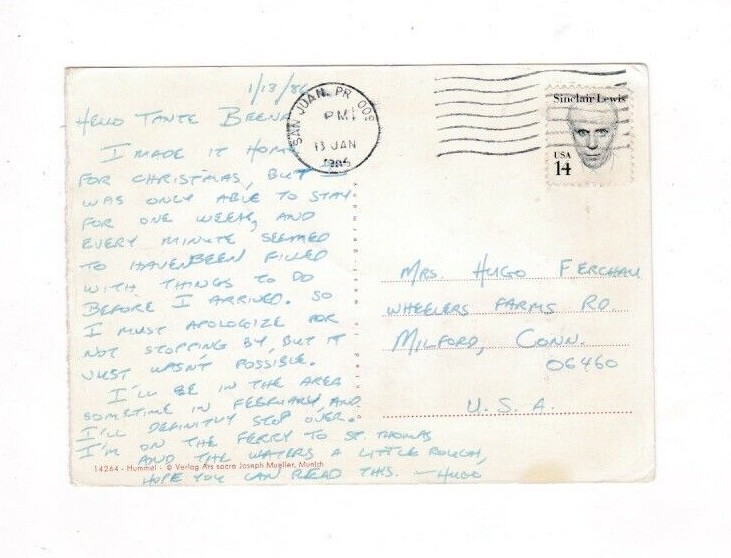 1/13/86
HELLO TANTE BEENA
I MADE IT HOME
FOR CHRISTMAS, BUT
WAS ONLY ABLE TO STAY
FOR ONE WEEK, AND
EVERY MINUTE SEEMED
TO HAVE BEEN FILLED
WITH THINGS TO DO
BEFORE I ARRIVED. SO
I MUST APOLOGIZE FOR
NOT STOPPING BY, BUT IT
JUST WASN'T POSSIBLE.
I'LL BE IN THE AREA
SOMETIME IN FEBRUARY AND
I'LL DEFINITLY STOP OVER.
I'M ON THE FERRY TO ST. THOMAS
AND THE WATERS A LITTLE ROUGH,
HOPE YOU CAN READ THIS. — HUGO
14264 - Hummel - © Verlag Ars sacra Joseph Mueller, Munich
SAN JUAN, PR 009
PM
13 JAN
Sinclair Lewis
USA
14
MRS HUGO FERCHAU
WHEELERS FARMS RD.
MILFORD, CONN.
06460
U.S.A.